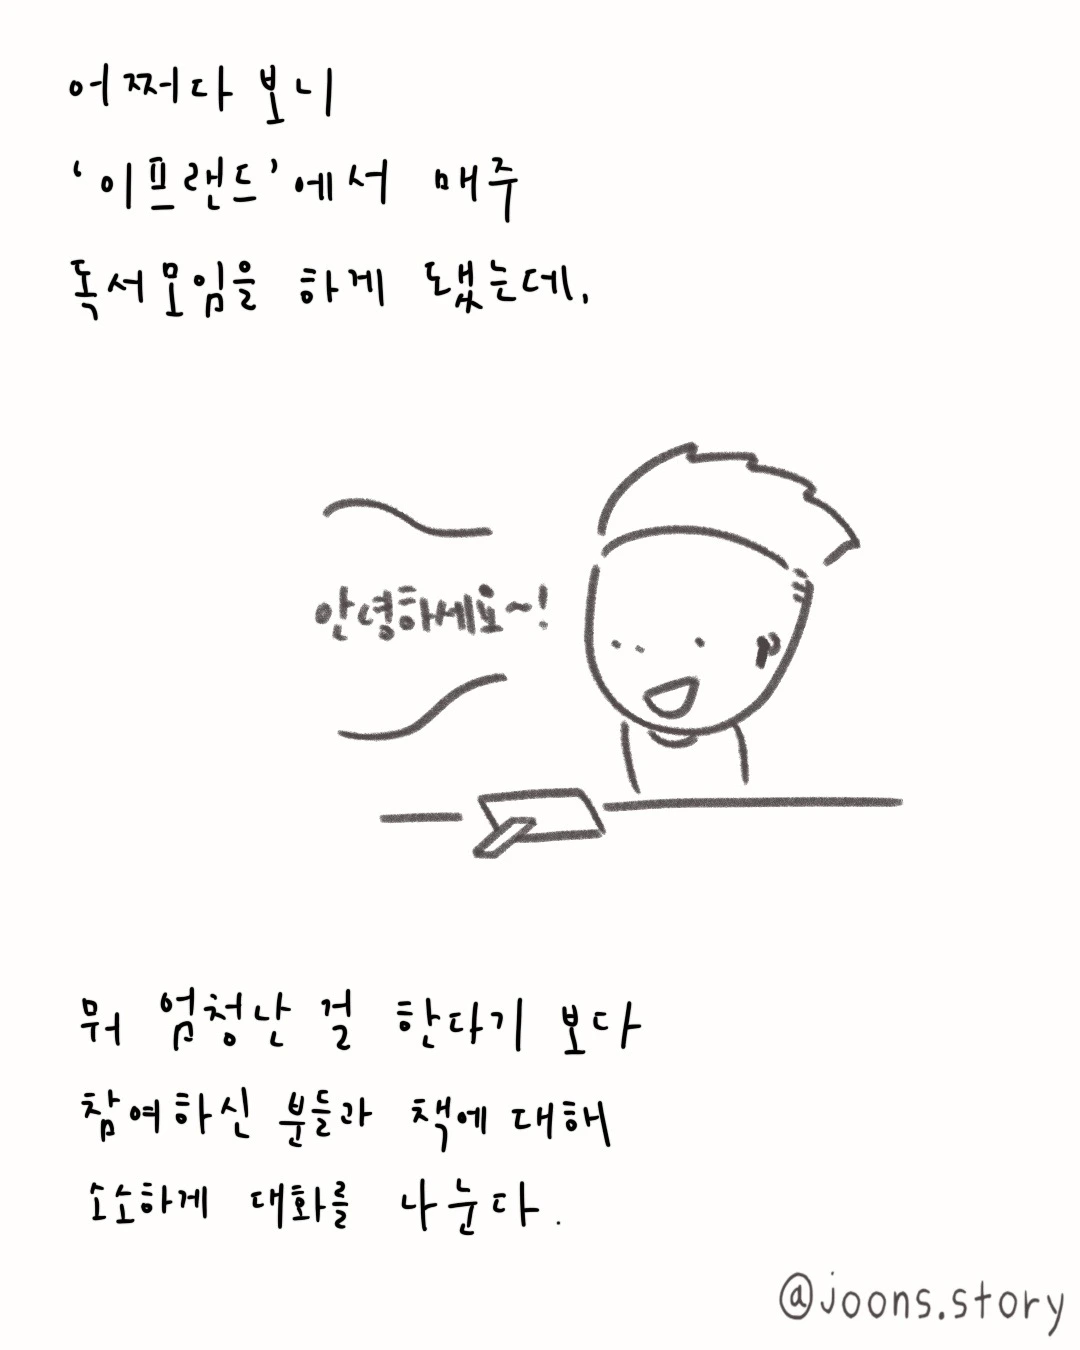 어쩌다 보니
‘이프랜드’에서 매주
독서모임을 하게 됐는데,
안녕하세요~!
뭐 엄청난 걸 한다기 보다
참여하신 분들과 책에 대해
소소하게 대화를 나눈다.
@joons.story